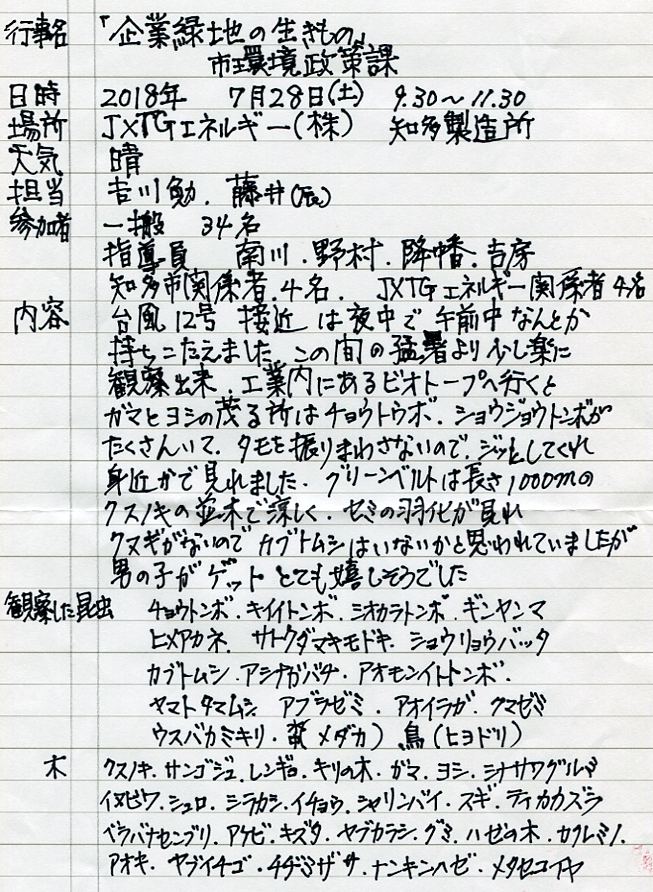 行事名 「企業緑地の生きもの」
市環境政策課
日時 2018年 7月28日(土) 9.30～11.30
場所 JXTGエネルギー(株) 知多製造所
天気 晴
担当 吉川勉. 藤井(辰)
参加者 一搬 34名
指導員 南川.野村.降幡.吉房
知多市関係者.4名. JXTGエネルギー関係者4名
内容 台風12号 接近は夜中で午前中なんとか
持ちこたえました この間の猛暑より少し楽に
観察出来.工業内にあるビオトープへ行くと
ガマとヨシの茂る所はチョウトウボ.ショウジョウトンボが
たくさんいて.タモを振りまわさないので.ジッとしてくれ
身近かで見れました.グリーンベルトは長さ1000mの
クスノキの並木で涼しく.セミの羽化が見れ
クヌギがないのでカブトムシはいないかと思われていましたが
男の子がゲット とても嬉しそうでした
観察した昆虫 チョウトンボ.キイイトンボ.シオカラトンボ.ギンヤンマ
ヒメアカネ.サトクダマキモドキ.ショウリョウバッタ
カブトムシ.アシナガバチ.アオモンイトトンボ.
ヤマトタマムシ アブラゼミ.アオイラガ.クマゼミ
ウスバカミキリ. メダカ) 鳥(ヒヨドリ)
木 クスノキ.サンゴジュ.レンギョ.キリの木.ガマ.ヨシ.シナサワグルミ
イヌビワ.シュロ.シラカシ.イチョウ.シャリンバイ.スギ.テイカカズラ
ベラバナセンブリ.アケビ.キズタ.ヤブカラシ.グミ.ハゼの木.カクレミノ.
アオキ.ヤブイチゴ.チヂミザサ.ナンキンハゼ.メタセコイヤ